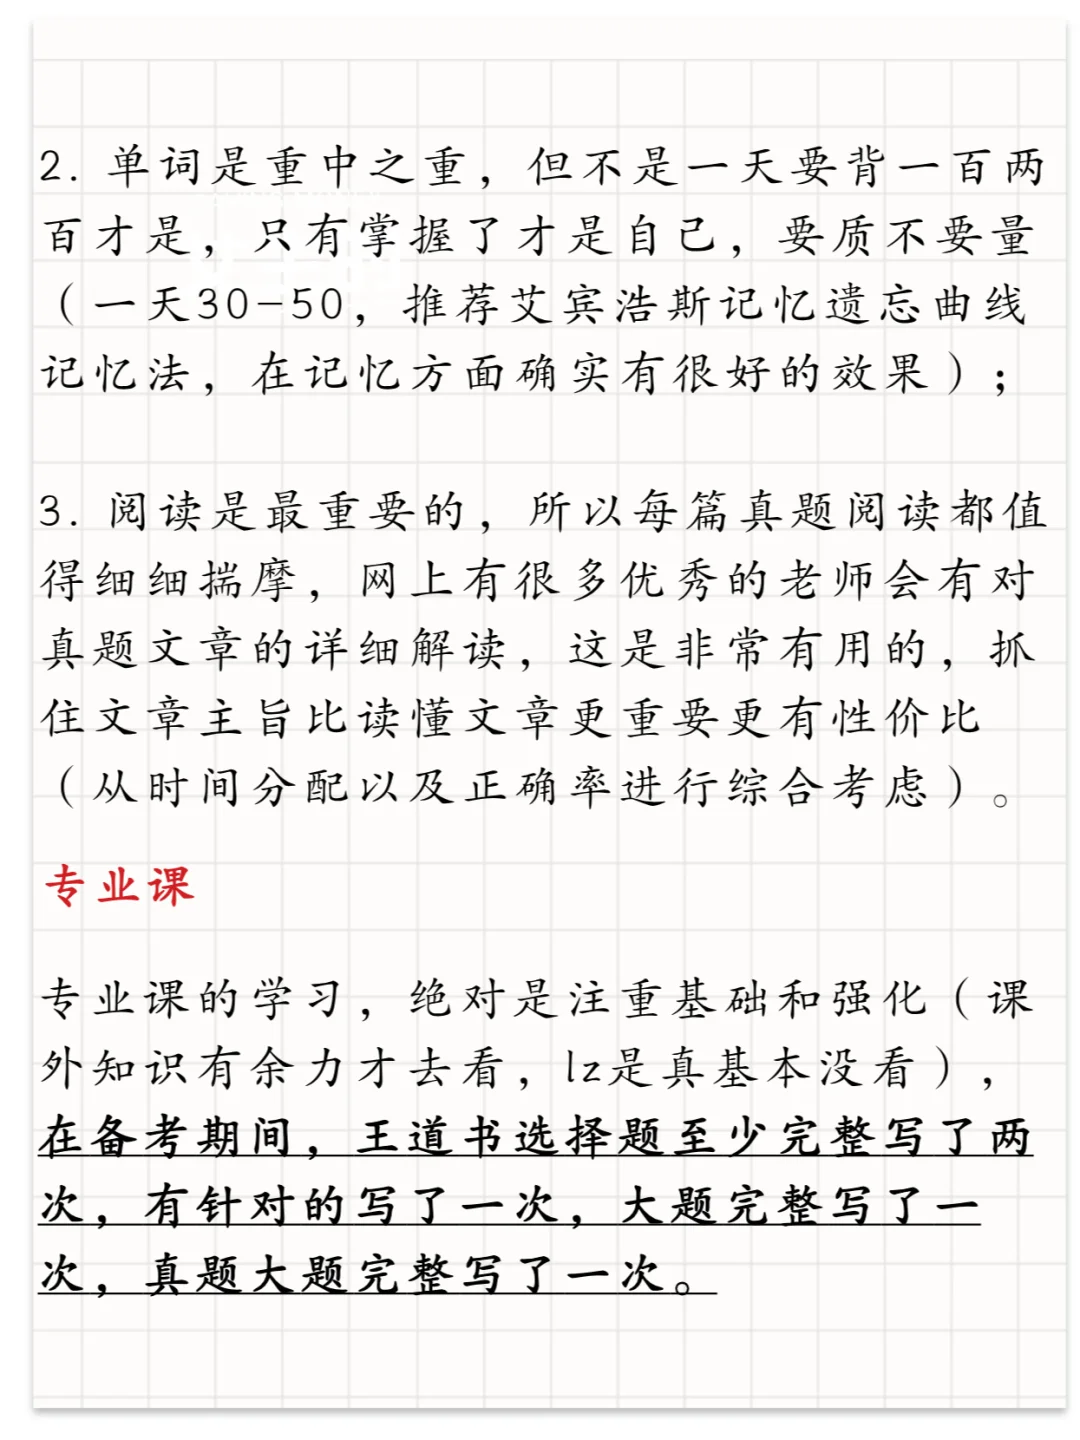 2. 单词是重中之重，但不是一天要背一百两
百才是，只有掌握了才是自己，要质不要量
（一天30-50，推荐艾宾浩斯记忆遗忘曲线
记忆法，在记忆方面确实有很好的效果）；
3. 阅读是最重要的，所以每篇真题阅读都值
得细细揣摩，网上有很多优秀的老师会有对
真题文章的详细解读，这是非常有用的，抓
住文章主旨比读懂文章更重要更有性价比
（从时间分配以及正确率进行综合考虑）。
专业课
专业课的学习，绝对是注重基础和强化（课
外知识有余力才去看，lz是真基本没看），
在备考期间，王道书选择题至少完整写了两
次，有针对的写了一次，大题完整写了一
次，真题大题完整写了一次。